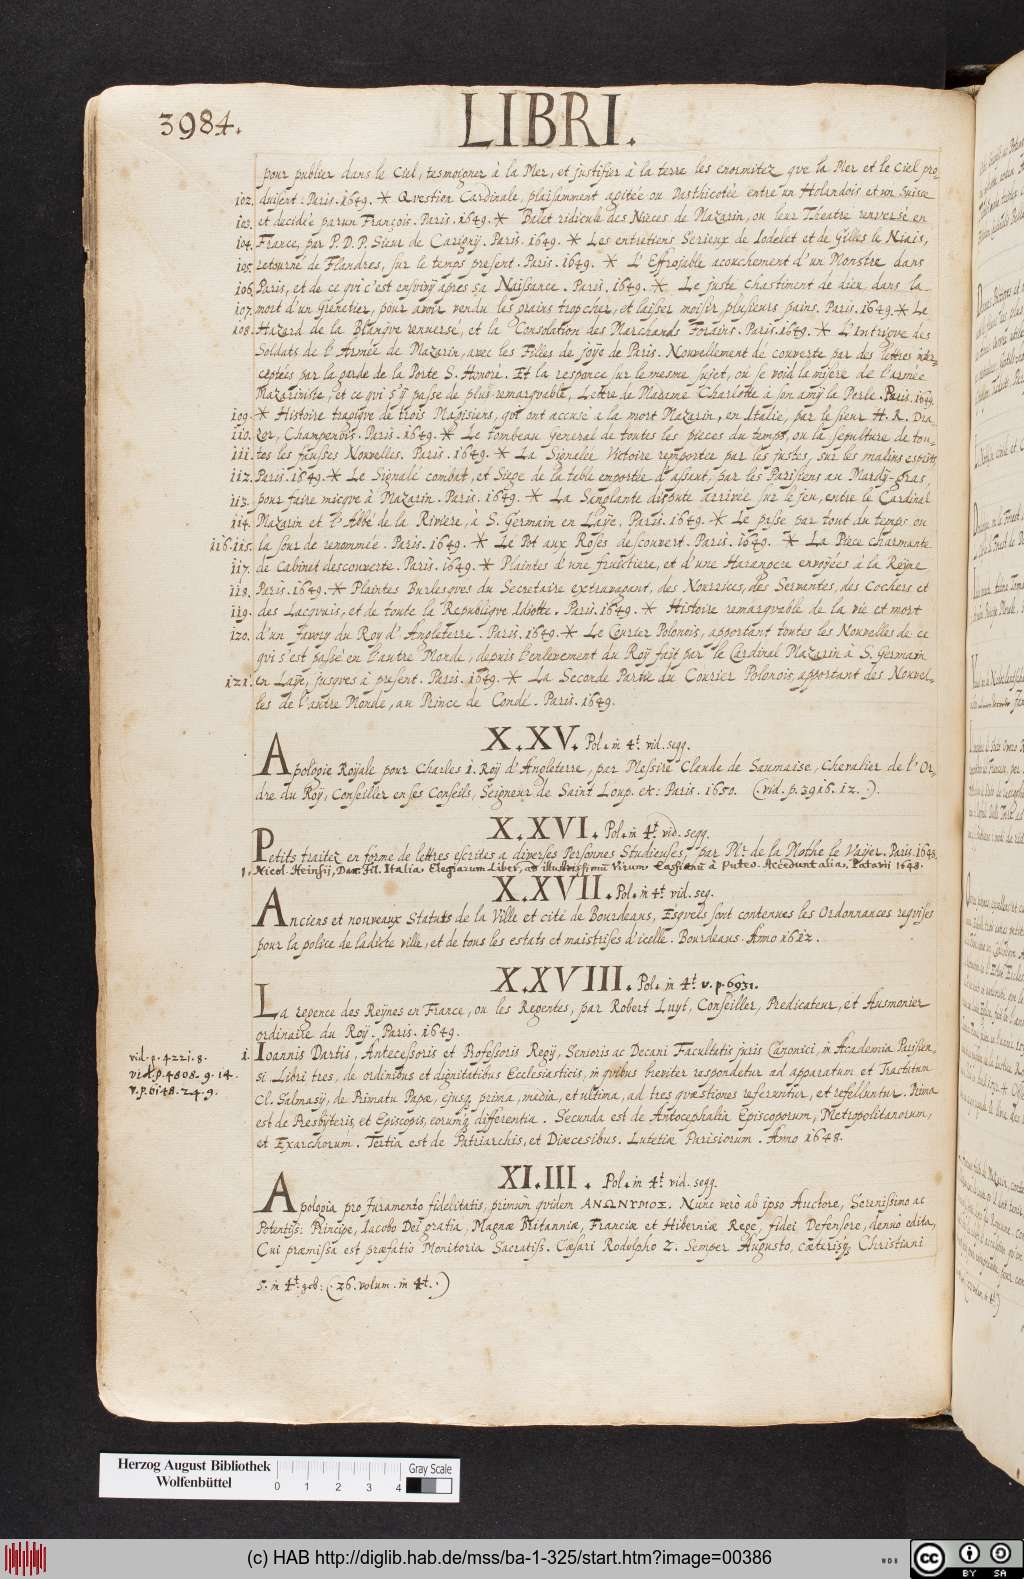 3984.
LIBRI.
pour publier dans le Ciel, tesmoigner à la Mer, et justifier à la terre les enormitez que la Mer et le Ciel pro-
102. duisent. Paris. 1649. * Question Cardinale, plaisamment agitée ou Dasthicotée entre un Holandois et un Suisse
103. et decidée par un François. Paris. 1649. * Balet ridicule des Nieces de Mazarin, ou leur Theatre renversé en
104. France, par P. D. P. Sieur de Carigny. Paris. 1649. * Les entretiens Serieux de Iodelet et de Gilles le Niais,
105. retourné de Flandres, sur le temps present. Paris. 1649. * L'Effroyable acouchement d'un Monstre dans
106. Paris, et de ce qui c'est ensuivy apres sa Naissance. Paris. 1649. * Le juste Chastiment de dieu dans la
107. mort d'un Grenetier, pour avoir vendu les grains trop cher, et laisser moisir plusieurs pains. Paris. 1649. * Le
108. Hazard de la Blanque renversé, et la Consolation des Marchands Forains. Paris. 1649. * L'Intrigve des
Soldats de l'Armée de Mazarin, avec les Filles de joye de Paris. Nouvellement découverte par des lettres inter-
ceptées par la garde de la Porte S. Honoré. Et la responce sur le mesme sujet, ou se void la misere de l'armée
Mazariniste, et ce qui s'y passe de plus remarquable, Lettre de Madame Charlotte a son amy la Perle. Paris. 1649.
109. * Histoire tragique de trois Magisiens, qui ont accusé a la mort Mazarin, en Italie, par le sieur H. R. Dra-
110. zor, Champenois. Paris. 1649. * Le tombeau General de toutes les pieces du temps, ou la sepulture de tou-
111. tes les fausses Nouvelles. Paris. 1649. * La Signalée Victoire remportée par les justes, sur les malins esprits
112. Paris. 1649. * Le Signalé combat, et Siege de la table emportée d'assaut, par les Parisiens au Mardy-gras,
113. pour faire nicque à Mazarin. Paris. 1649. * La Sanglante dispute arrivée sur le jeu, entre le Cardinal
114. Mazarin et l'Abbé de la Riviere, à S. Germain en Laye. Paris. 1649. * Le passe par tout du temps ou
116. 115. la sour de renommée. Paris. 1649. * Le Pot aux Roses descouvert. Paris. 1649. * La Piece charmante
117. de Cabinet descouverte. Paris. 1649. * Plaintes d'une fruictiere, et d'une Harangere envoyées à la Reyne
118. Paris. 1649. * Plaintes Burlesques du Secretaire extravagant, des Nourrices, des Servantes, des Cochers et
119. des Lacquais, et de toute la Republique Idiotte. Paris. 1649. * Histoire remarquable de la vie et mort
120. d'un favory du Roy d'Angleterre. Paris. 1649. * Le Courier Polonois, apportant toutes les Nouvelles de ce
qui s'est passé en l'autre Monde, depuis l'enlevement du Roy fait par le Cardinal Mazarin à S. Germain
121. en Laye, jusques à present. Paris. 1649. * La Seconde Partie du Courier Polonois, apportant des Nouvel-
les de l'autre Monde, au Prince de Condé. Paris. 1649.
X.XV. Pol. in 4t. vid. segg.
Apologie Royale pour Charles I. Roy d'Angleterre, par Messire Claude de Saumaise, Chevalier de l'Or-
dre du Roy, Conseiller en ses Conseils, Seigneur de Saint Loup. etc: Paris. 1650. (vid. p. 3916. 12.)
X.XVI. Pol. in 4t. vid. segg.
Petits traitez en forme de lettres escrites a diverses Personnes Studieuses, par Mr. de la Mothe le Vayer. Paris. 1648.
1. Nicol. Heinsij, Dan. Fil. Italia. Elegiarum Liber, ad illustrissimū Virum Cassianū à Puteo. Accedunt alias. Patavii 1648.
X.XVII. Pol. in 4t vid. seg.
Anciens et nouveaux Statuts de la Ville et cité de Bourdeaus, Esquels sont contenues les Ordonnances requises
pour la police de ladicte ville, et de tous les estats et maistrises d'icelle. Bourdeaus. Anno 1612.
X.XVIII. Pol. in 4t v. p. 6931.
La regence des Reynes en France, ou les Regentes, par Robert Luyt, Conseiller, Predicateur, et Ausmonier
ordinaire du Roy. Paris. 1649.
vid. p. 4221. 8.
vid. p. 4808. 9. 14.
v. p. 6148. 24. 9.
1. Ioannis Dartis, Antecessoris et Professoris Regij, Senioris ac Decani Facultatis juris Canonici, in Academia Parisien-
si Libri tres, de ordinibus et dignitatibus Ecclesiasticis, in quibus breviter respondetur ad apparatum et Tractatum
Cl. Salmasij, de Primatu Papæ, ejusq; prima, media, et ultima, ad tres quæstiones referuntur, et refelluntur. Prima
est de Presbyteris, et Episcopis, eorumq; differentia. Secunda est de Autocephalia Episcoporum, Metropolitanorum,
et Exarchorum. Tertia est de Patriarchis, et Diœcesibus. Lutetiæ Parisiorum. Anno 1648.
XI.III. Pol. in 4t vid. segg.
Apologia pro Juramento fidelitatis, primùm quidem ΑΝΩΝΥΜΟΣ. Nunc verò ab ipso Auctore, Serenissimo ac
Potentiss: Principe, Iacobo Dei gratia, Magnæ Britanniæ, Franciæ et Hiberniæ Rege, fidei Defensore, denuò edita,
Cui præmissa est præfatio Monitoria Sacratiss. Cæsari Rodolpho 2. Semper Augusto, cæterisq; Christiani
S. in 4t. geb: (. 26. volum. in 4t. .)
Herzog August Bibliothek
Wolfenbüttel
0 1 2 3 4
Gray Scale
(c) HAB http://diglib.hab.de/mss/ba-1-325/start.htm?image=00386
WDB
CC BY SA